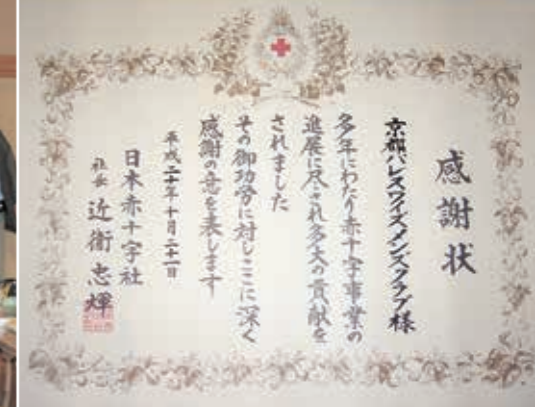 感謝状
京都パレスワイズメンズクラブ様
多年にわたり赤十字事業の
進展に尽され多大の貢献を
されました
その御功労に対しここに深く
感謝の意を表します
平成二十年十月二十一日
日本赤十字社
社長 近衞忠煇